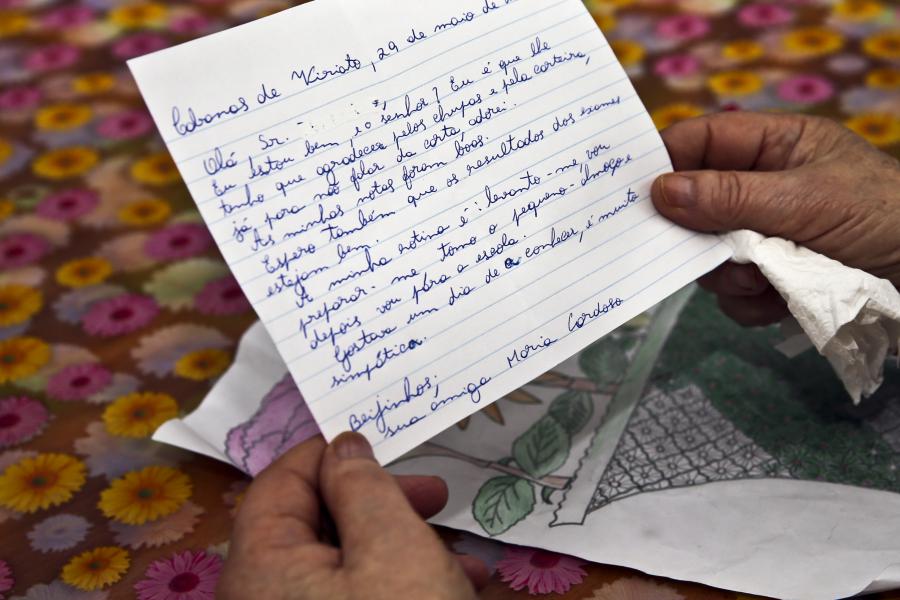 Cabanas de Viriato, 29 de maio de
Olá Sr.
Eu estou bem, e o senhor? Eu é que lhe
tenho que agradecer pelos chupas e pela carteira,
já para não falar da carta, adorei.
As minhas notas foram boas.
Espero também que os resultados dos exames
estejam bem.
A minha rotina é: levanto-me, vou
preparar-me, tomo o pequeno-almoço e
depois vou para a escola.
Gostava um dia de a conhecer, é muito
simpática.
Beijinhos;
sua amiga Maria Cardoso